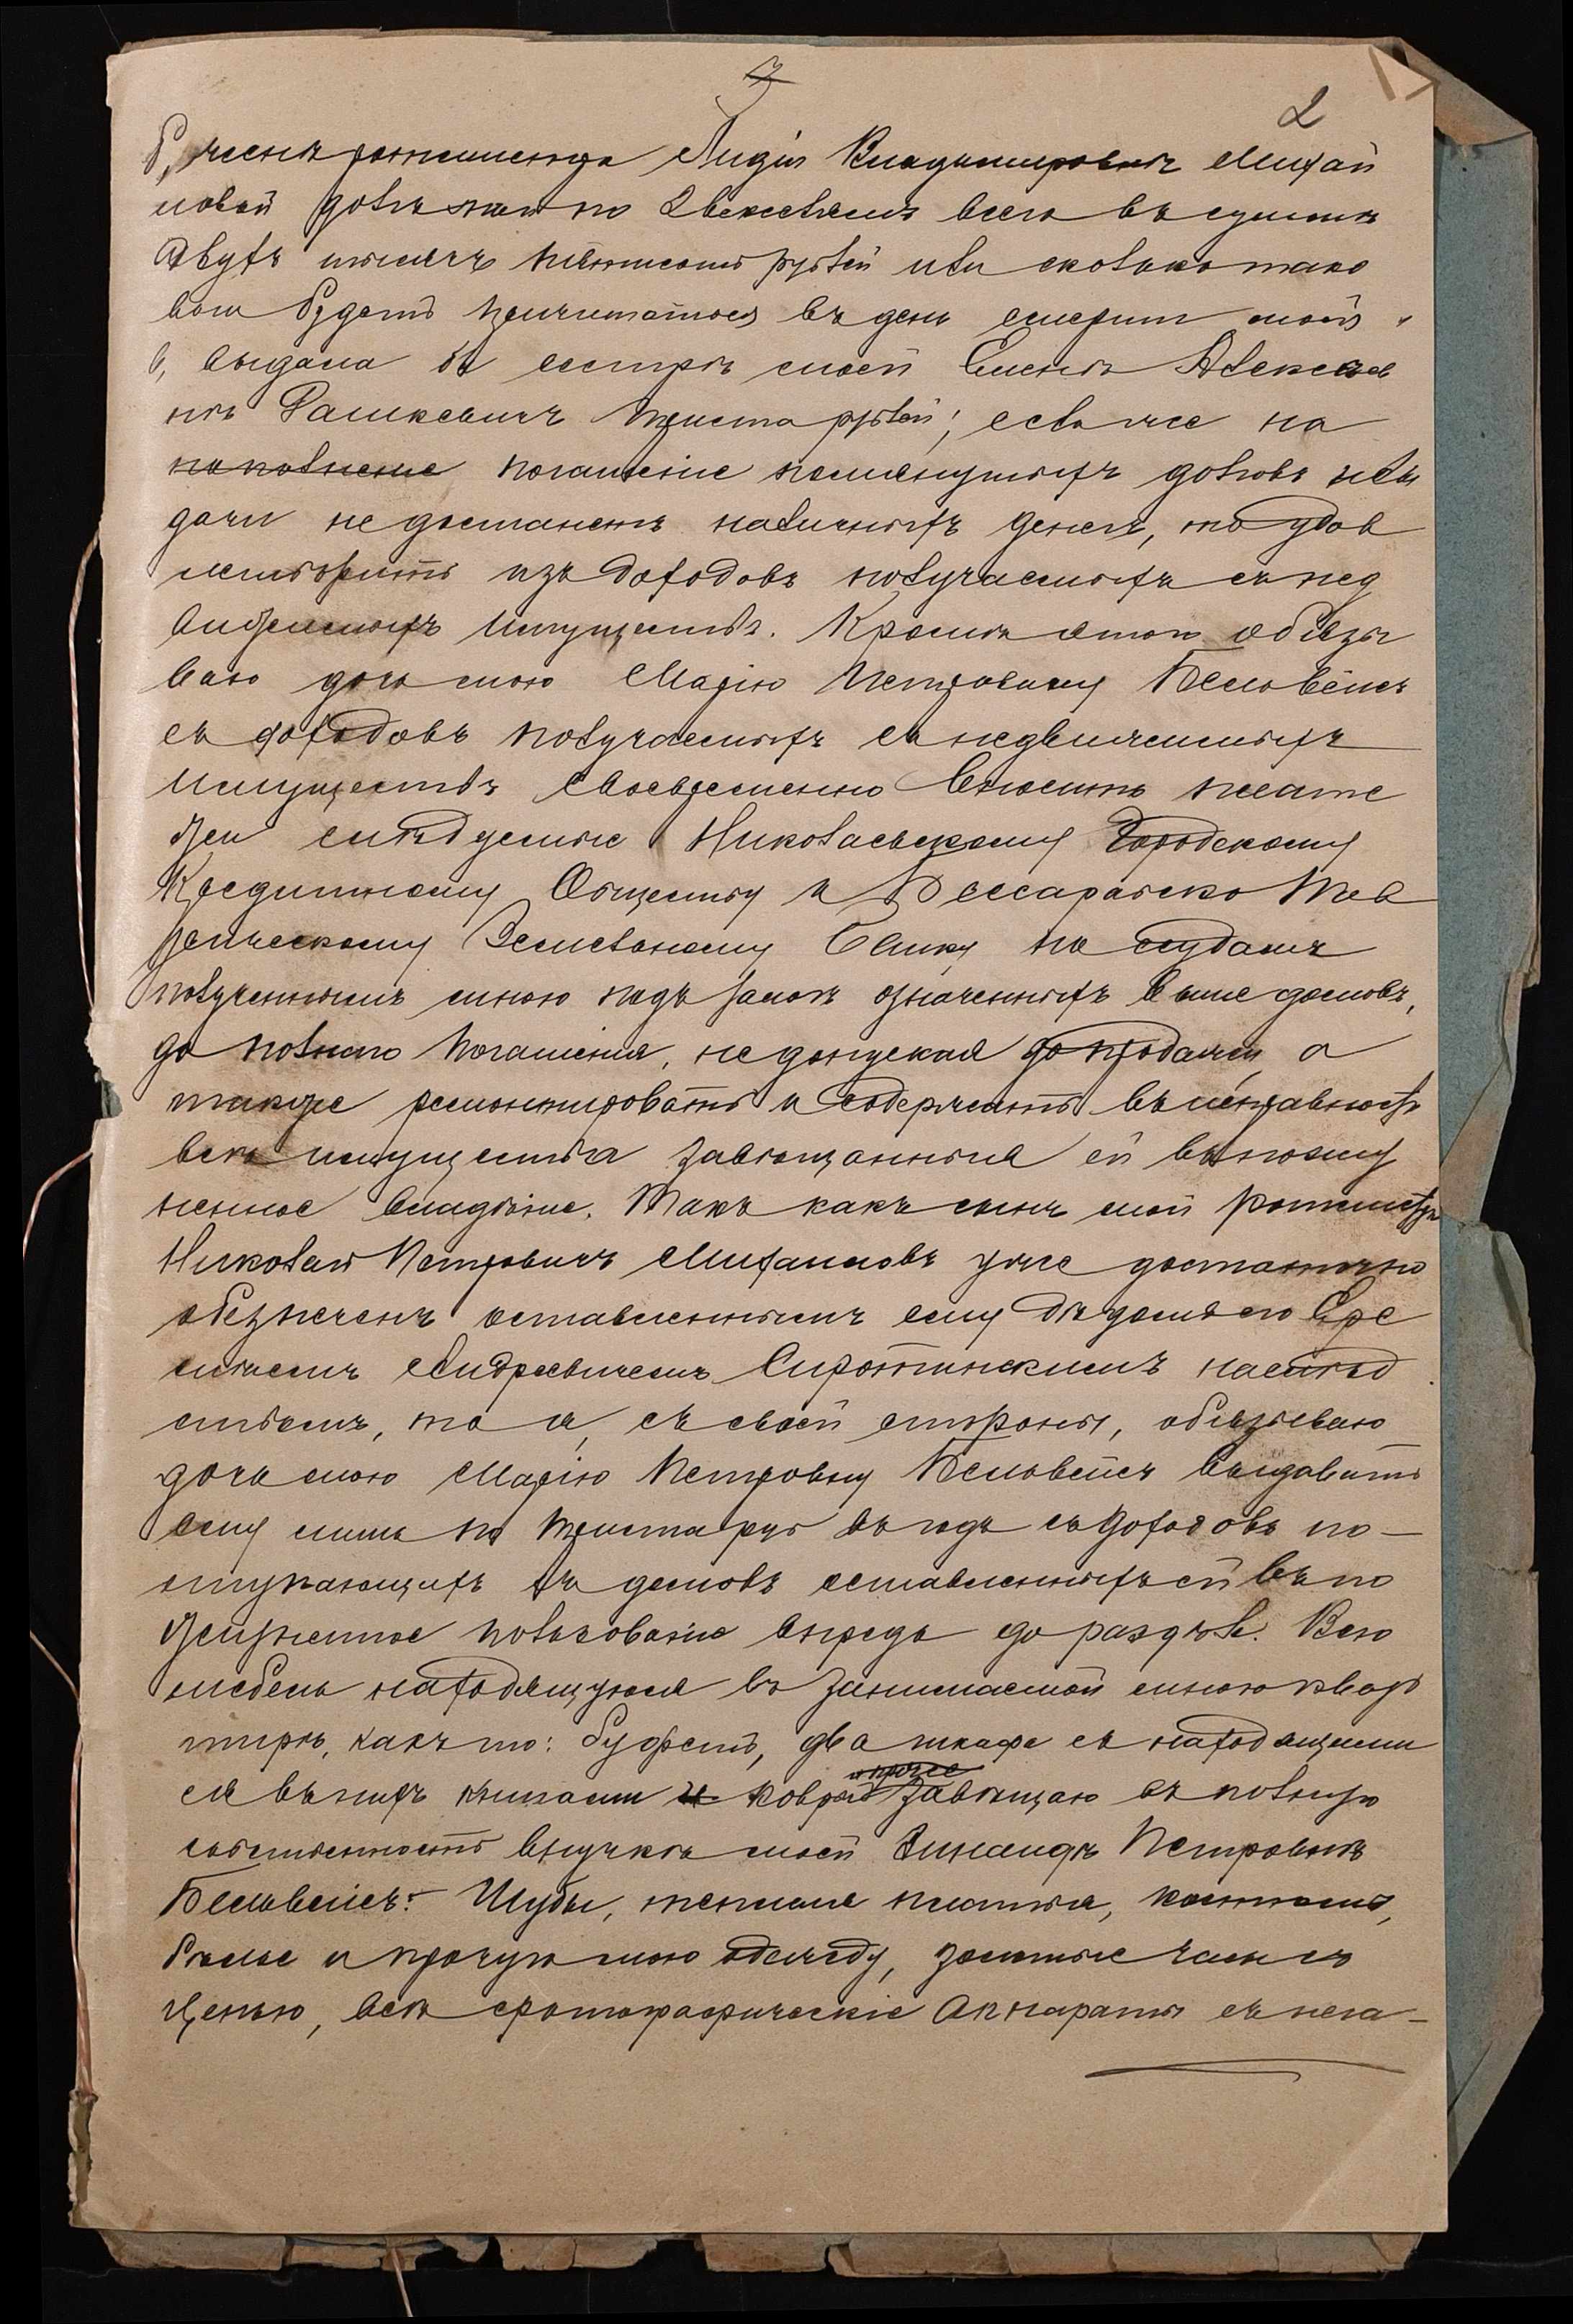 2
б, женѣ ротмистра Лидіи Владимировнѣ Михай
ловой долгъ мой по 2 векселямъ всего въ суммѣ
двухъ тысячъ пятисотъ рублей или сколько тако
вого будетъ причитаться въ день смерти моей и
в, выдана бы сестрѣ моей Еленѣ Алексѣев
нѣ Рашкевичъ триста рублей; если же на
пополненіе погашеніе помянутыхъ долговъ и вы
дачи не достанетъ наличныхъ денегъ, то удов
летворить изъ доходовъ получаемыхъ съ нед
вижимыхъ имуществъ. Кромѣ этого обязы
ваю дочь мою Марію Петровну Бемъвейсъ
съ доходовъ получаемыхъ съ недвижимыхъ
имуществъ своевременно вносить плате
жи слѣдуемые Николаевскому Городскому
Кредитному Обществу и Бессарабско Тав
рическому Земельному Банку по ссудамъ
полученнымъ мною подъ залогъ означенныхъ выше домовъ,
до полнаго погашенія, не допуская до продажи, а
также ремонтировать и содержать въ исправности
всѣ имущества завѣщанныя ей въ пожиз
ненное владѣніе. Такъ какъ сынъ мой ротмистръ
Николай Петровичъ Михайловъ уже достаточно
обезпеченъ оставленнымъ ему дѣдомъ его Ере
мѣемъ Андреевичемъ Сиротинскимъ наслѣд
ствомъ, то я, съ своей стороны, обязываю
дочь мою Марію Петровну Бемъвейсъ выдавать
ему лишь по триста руб въ годъ съ доходовъ по-
ступающихъ съ домовъ оставленныхъ ей въ по
жизненное пользованіе впредь до раздѣла. Всю
мебель находящуюся въ занимаемой мною квар
тирѣ, какъ то: буфетъ, два шкафа съ находящими
и прочее
ся въ нихъ книгами и ковры завѣщаю въ полную
собственность внучкѣ моей Зинаидѣ Петровнѣ
Бемъвейсъ. Шубы, теплыя платья, костюмы,
бѣлье и прочую мою одежду, золотые часы съ
цепью, всѣ фотографическіе аппараты съ нега-